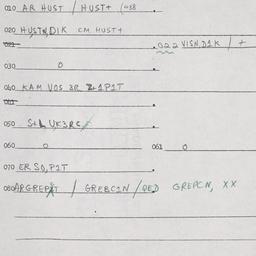 010 AR HUST / HUST+ (038
020 HUSTN, DIK CM HUST+
022 VISN, D1K / +
030 0
040 KAM VOS 3R P1T
050 UK3RS
060 0 061 0
070 ER SO, P1T
080 ARGREP / GREBCIN / GREPCN, XX